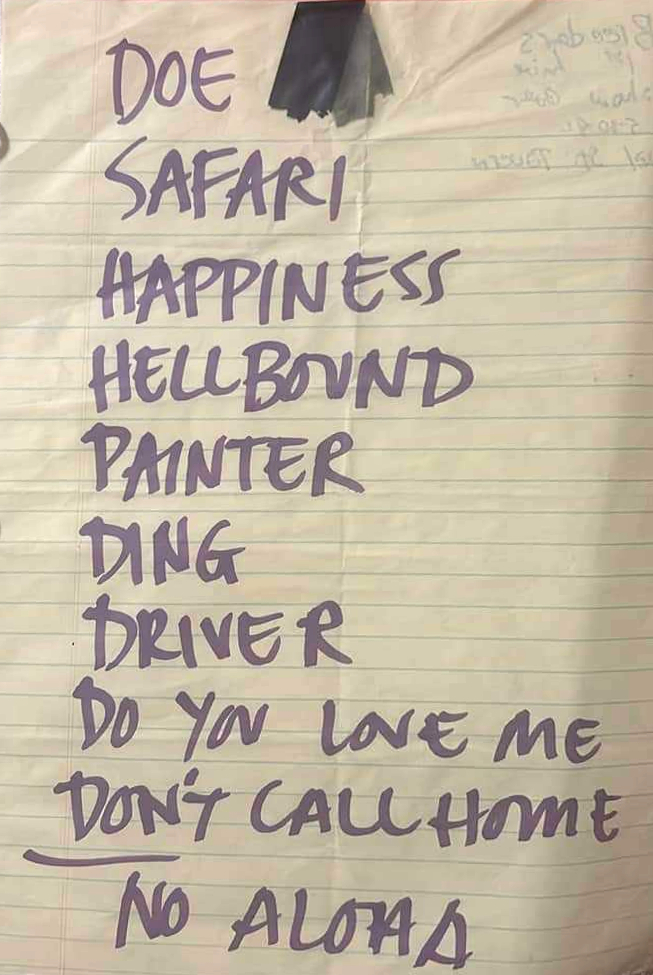 DOE
SAFARI
HAPPINESS
HELLBOUND
PAINTER
DING
DRIVER
DO YOU LOVE ME
DON'T CALL HOME
NO ALOHA
Breeders
1st
show
Tavern